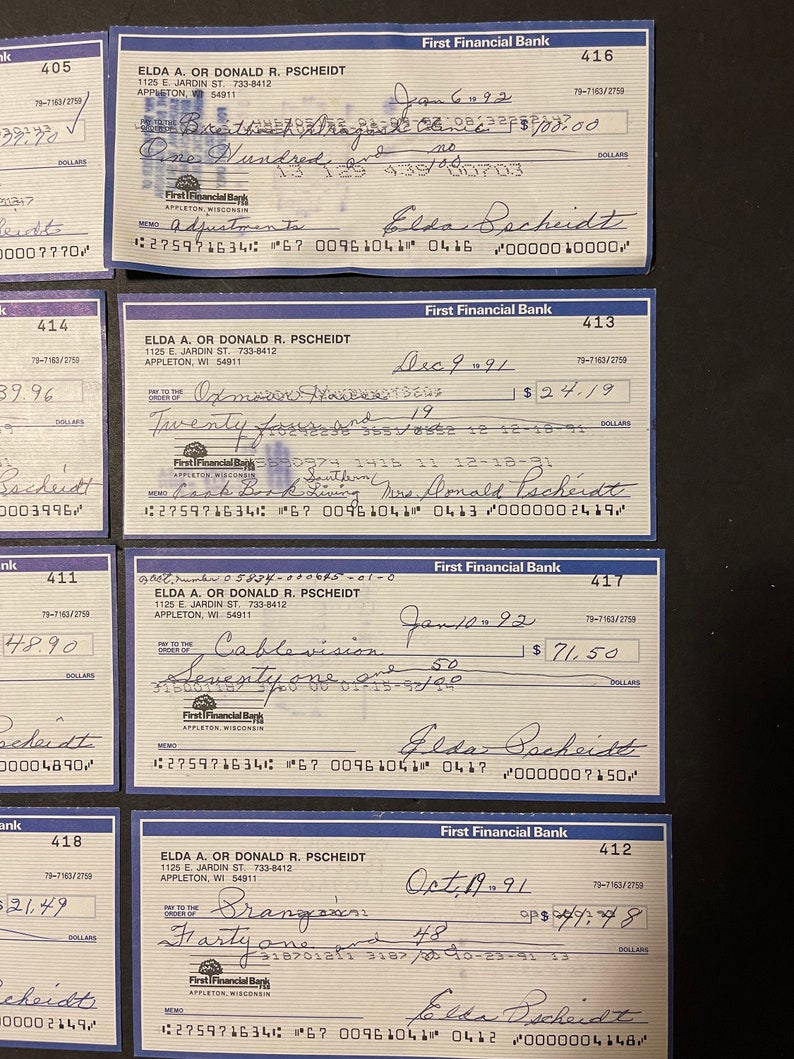 nk
405
79-7163/2759
37.70
DOLLARS
00007770
First Financial Bank
416
ELDA A. OR DONALD R. PSCHEIDT
1125 E. JARDIN ST. 733-8412
APPLETON, WI 54911
Jan 6 19 92
79-7163/2759
PAY TO THE
ORDER OF
Clinic $ 100.00
One Hundred and no/100 DOLLARS
13 129 439 00703
First Financial Bank
FSB
APPLETON, WISCONSIN
MEMO adjustments Elda Pscheidt
275971634 67 00961041 0416 0000010000
k
414
79-7163/2759
39.96
DOLLARS
Pscheidt
0003996
First Financial Bank
413
ELDA A. OR DONALD R. PSCHEIDT
1125 E. JARDIN ST. 733-8412
APPLETON, WI 54911
Dec 9 19 91
79-7163/2759
PAY TO THE
ORDER OF Oxmoor House $ 24.19
Twenty four and 19 DOLLARS
12-18-91
1416 11 12-18-91
First Financial Bank
FSB
APPLETON, WISCONSIN
Southern
MEMO Cook Book Living Mrs. Donald Pscheidt
275971634 67 00961041 0413 0000002419
nk
411
79-7163/2759
48.90
DOLLARS
scheidt
00004890
First Financial Bank
acct. number 05834-000645-01-0
417
ELDA A. OR DONALD R. PSCHEIDT
1125 E. JARDIN ST. 733-8412
APPLETON, WI 54911
Jan 10 19 92
79-7163/2759
PAY TO THE
ORDER OF Cablevision $ 71.50
Seventy one and 50/100 DOLLARS
First Financial Bank
FSB
APPLETON, WISCONSIN
MEMO Elda Pscheidt
275971634 67 00961041 0417 0000007150
ank
418
79-7163/2759
$21.49
DOLLARS
scheidt
00002149
First Financial Bank
412
ELDA A. OR DONALD R. PSCHEIDT
1125 E. JARDIN ST. 733-8412
APPLETON, WI 54911
Oct. 19 19 91
79-7163/2759
PAY TO THE
ORDER OF Prange's $ 41.48
Forty one and 48/100 DOLLARS
318701211 3187 10-23-91 13
First Financial Bank
FSB
APPLETON, WISCONSIN
MEMO Elda Pscheidt
275971634 67 00961041 0412 0000004148